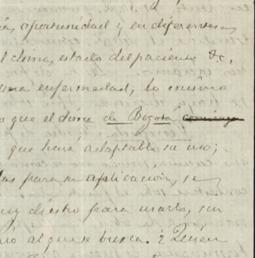 oportunidad y en diferentes
clima, estado del paciente &c,
una enfermedad, lo mismo
que el dirse de Bogotá
que hará adaptable su uso;
para su aplicacion, se
muy diestro para usarlo, sin
al que se busca. ¿ Quien